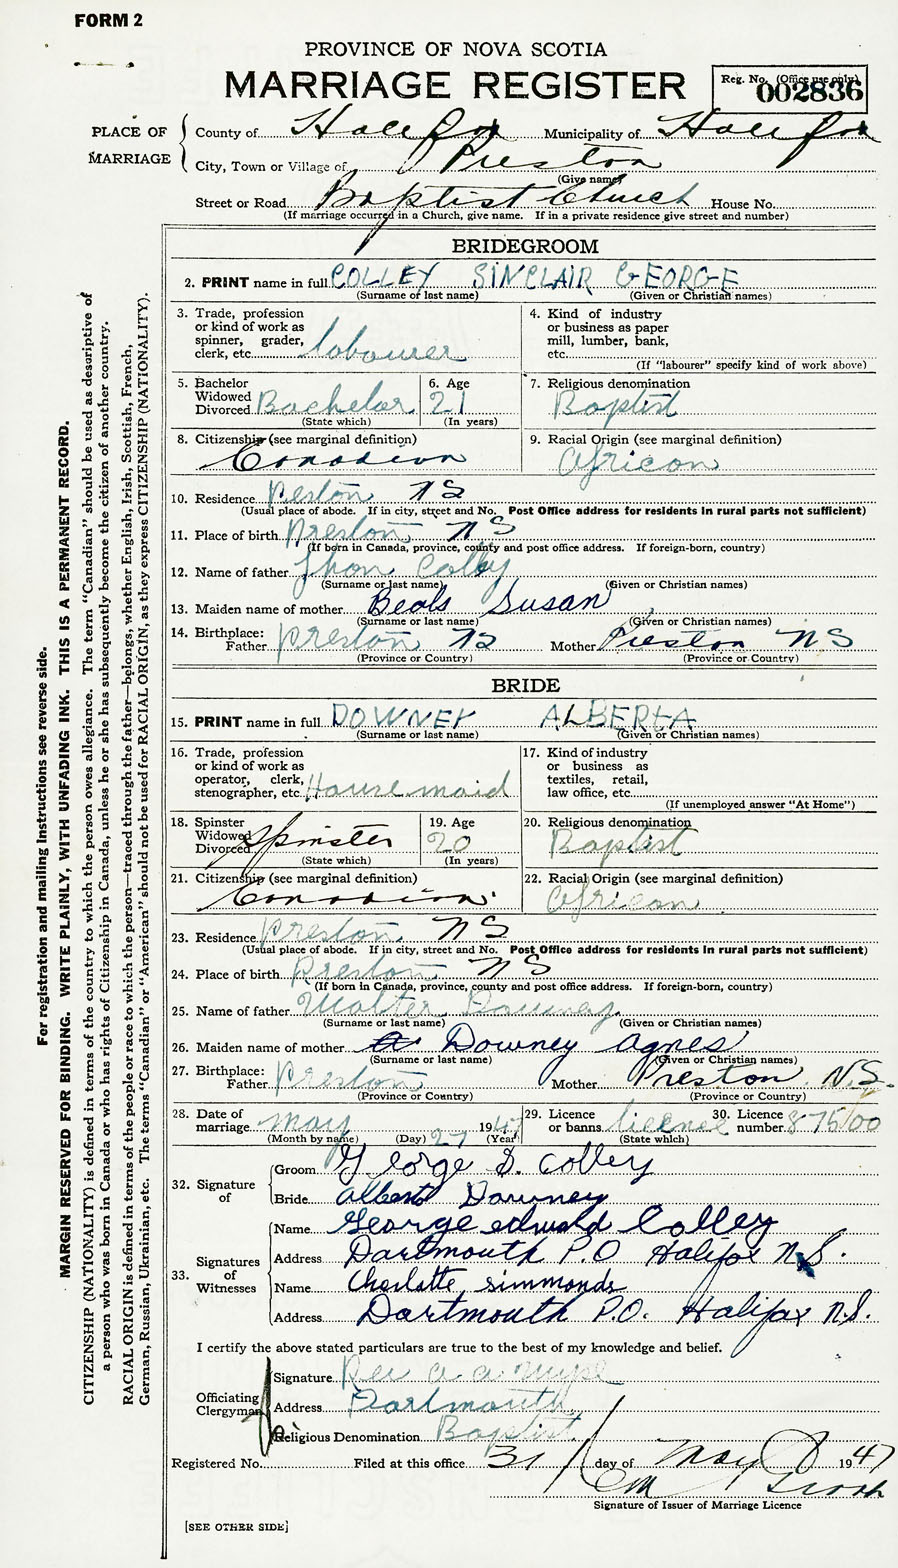 FORM 2
PROVINCE OF NOVA SCOTIA
MARRIAGE REGISTER
Reg. No. (Office use only)
002836
PLACE OF MARRIAGE
County of Halifax Municipality of Halifax
City, Town or Village of Preston
(Give name)
Street or Road Baptist Church House No.
(If marriage occurred in a Church, give name. If in a private residence give street and number)
BRIDEGROOM
2. PRINT name in full COLLEY SINCLAIR GEORGE
(Surname or last name) (Given or Christian names)
3. Trade, profession or kind of work as spinner, grader, clerk, etc. labourer
4. Kind of industry or business as paper mill, lumber, bank, etc.
(If "labourer" specify kind of work above)
5. Bachelor Widowed Divorced Bachelor
(State which)
6. Age 21
(In years)
7. Religious denomination
Baptist
8. Citizenship (see marginal definition)
Canadian
9. Racial Origin (see marginal definition)
African
10. Residence Preston NS
(Usual place of abode. If in city, street and No. Post Office address for residents in rural parts not sufficient)
11. Place of birth Preston NS
(If born in Canada, province, county and post office address. If foreign-born, country)
12. Name of father Jhon Colley
(Surname or last name) (Given or Christian names)
13. Maiden name of mother Beals Susan
(Surname or last name) (Given or Christian names)
14. Birthplace: Father Preston NS Mother Preston NS
(Province or Country) (Province or Country)
BRIDE
15. PRINT name in full DOWNEY ALBERTA
(Surname or last name) (Given or Christian names)
16. Trade, profession or kind of work as operator, clerk, stenographer, etc. House maid
17. Kind of industry or business as textiles, retail, law office, etc.
(If unemployed answer "At Home")
18. Spinster Widowed Divorced Spinster
(State which)
19. Age 20
(In years)
20. Religious denomination
Baptist
21. Citizenship (see marginal definition)
Canadian
22. Racial Origin (see marginal definition)
African
23. Residence Preston NS
(Usual place of abode. If in city, street and No. Post Office address for residents in rural parts not sufficient)
24. Place of birth Preston NS
(If born in Canada, province, county and post office address. If foreign-born, country)
25. Name of father Walter Downey
(Surname or last name) (Given or Christian names)
26. Maiden name of mother Downey Agnes
(Surname or last name) (Given or Christian names)
27. Birthplace: Father Preston Mother Preston N.S.
(Province or Country) (Province or Country)
28. Date of marriage May 27 1947
(Month by name) (Day) (Year)
29. Licence or banns licence
(State which)
30. Licence number 87500
32. Signature of
Groom George S. Colley
Bride Alberta Downey
33. Signatures of Witnesses
Name George edward Colley
Address Dartmouth P.O Halifax N.S.
Name Charlotte simmonds
Address Dartmouth P.O. Halifax N.S.
I certify the above stated particulars are true to the best of my knowledge and belief.
Officiating Clergyman
Signature Rev a a
Address Dartmouth
Religious Denomination Baptist
Registered No. Filed at this office 31 day of May 1947
Signature of Issuer of Marriage Licence
[SEE OTHER SIDE]
For registration and mailing instructions see reverse side.
MARGIN RESERVED FOR BINDING. WRITE PLAINLY, WITH UNFADING INK. THIS IS A PERMANENT RECORD.
CITIZENSHIP (NATIONALITY) is defined in terms of the country to which the person owes allegiance. The term "Canadian" should be used as descriptive of
a person who was born in Canada or who has rights of Citizenship in Canada, unless he or she has subsequently become the citizen of another country.
RACIAL ORIGIN is defined in terms of the people or race to which the person—traced through the father—belongs, whether English, Irish, Scottish, French,
German, Russian, Ukrainian, etc. The terms "Canadian" or "American" should not be used for RACIAL ORIGIN, as they express CITIZENSHIP (NATIONALITY).